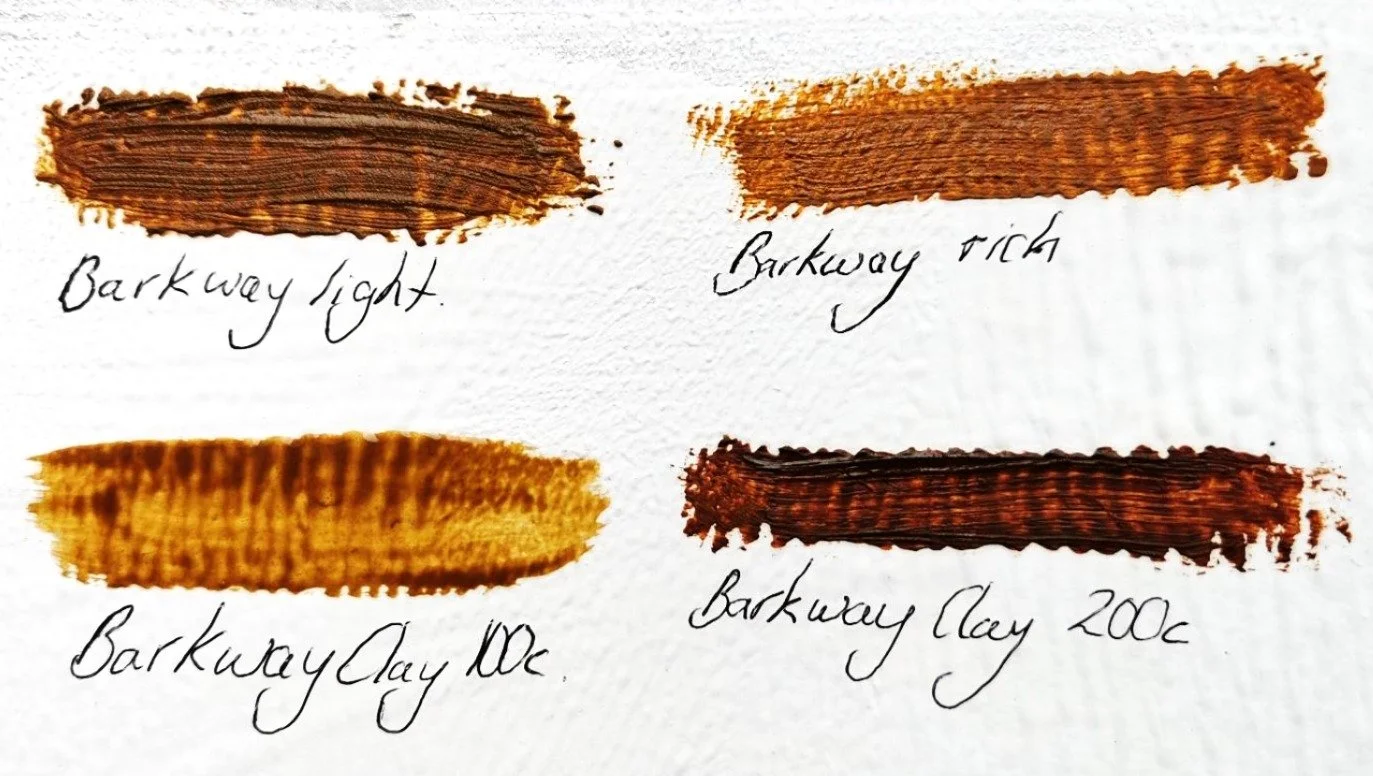 Barkway light.
Barkway rich
Barkway Clay 100c.
Barkway Clay 200c